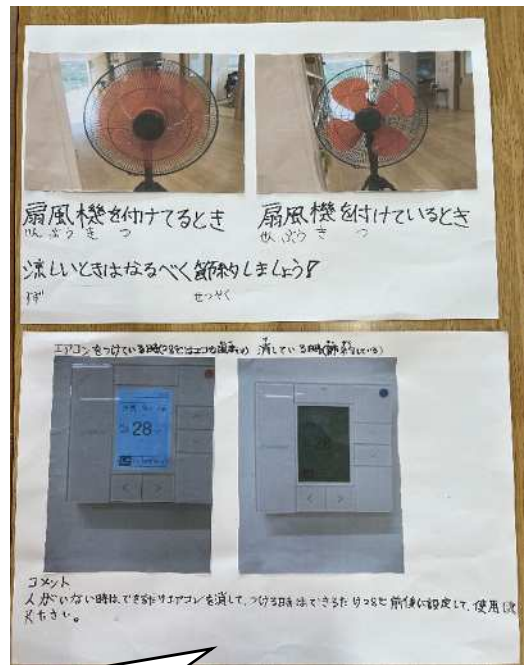 扇風機を付けてるとき
せんぷうき つ
扇風機を付けているとき
せんぷうき つ
涼しいときはなるべく節約しましょう!
すず せつやく
エアコンをつけている時(28℃はエコな温度)
消している時(節約している)
28
コメント
人がいない時は、できるだけエアコンを消して、つける時はできるだけ28℃前後に設定して、使用して
ください。